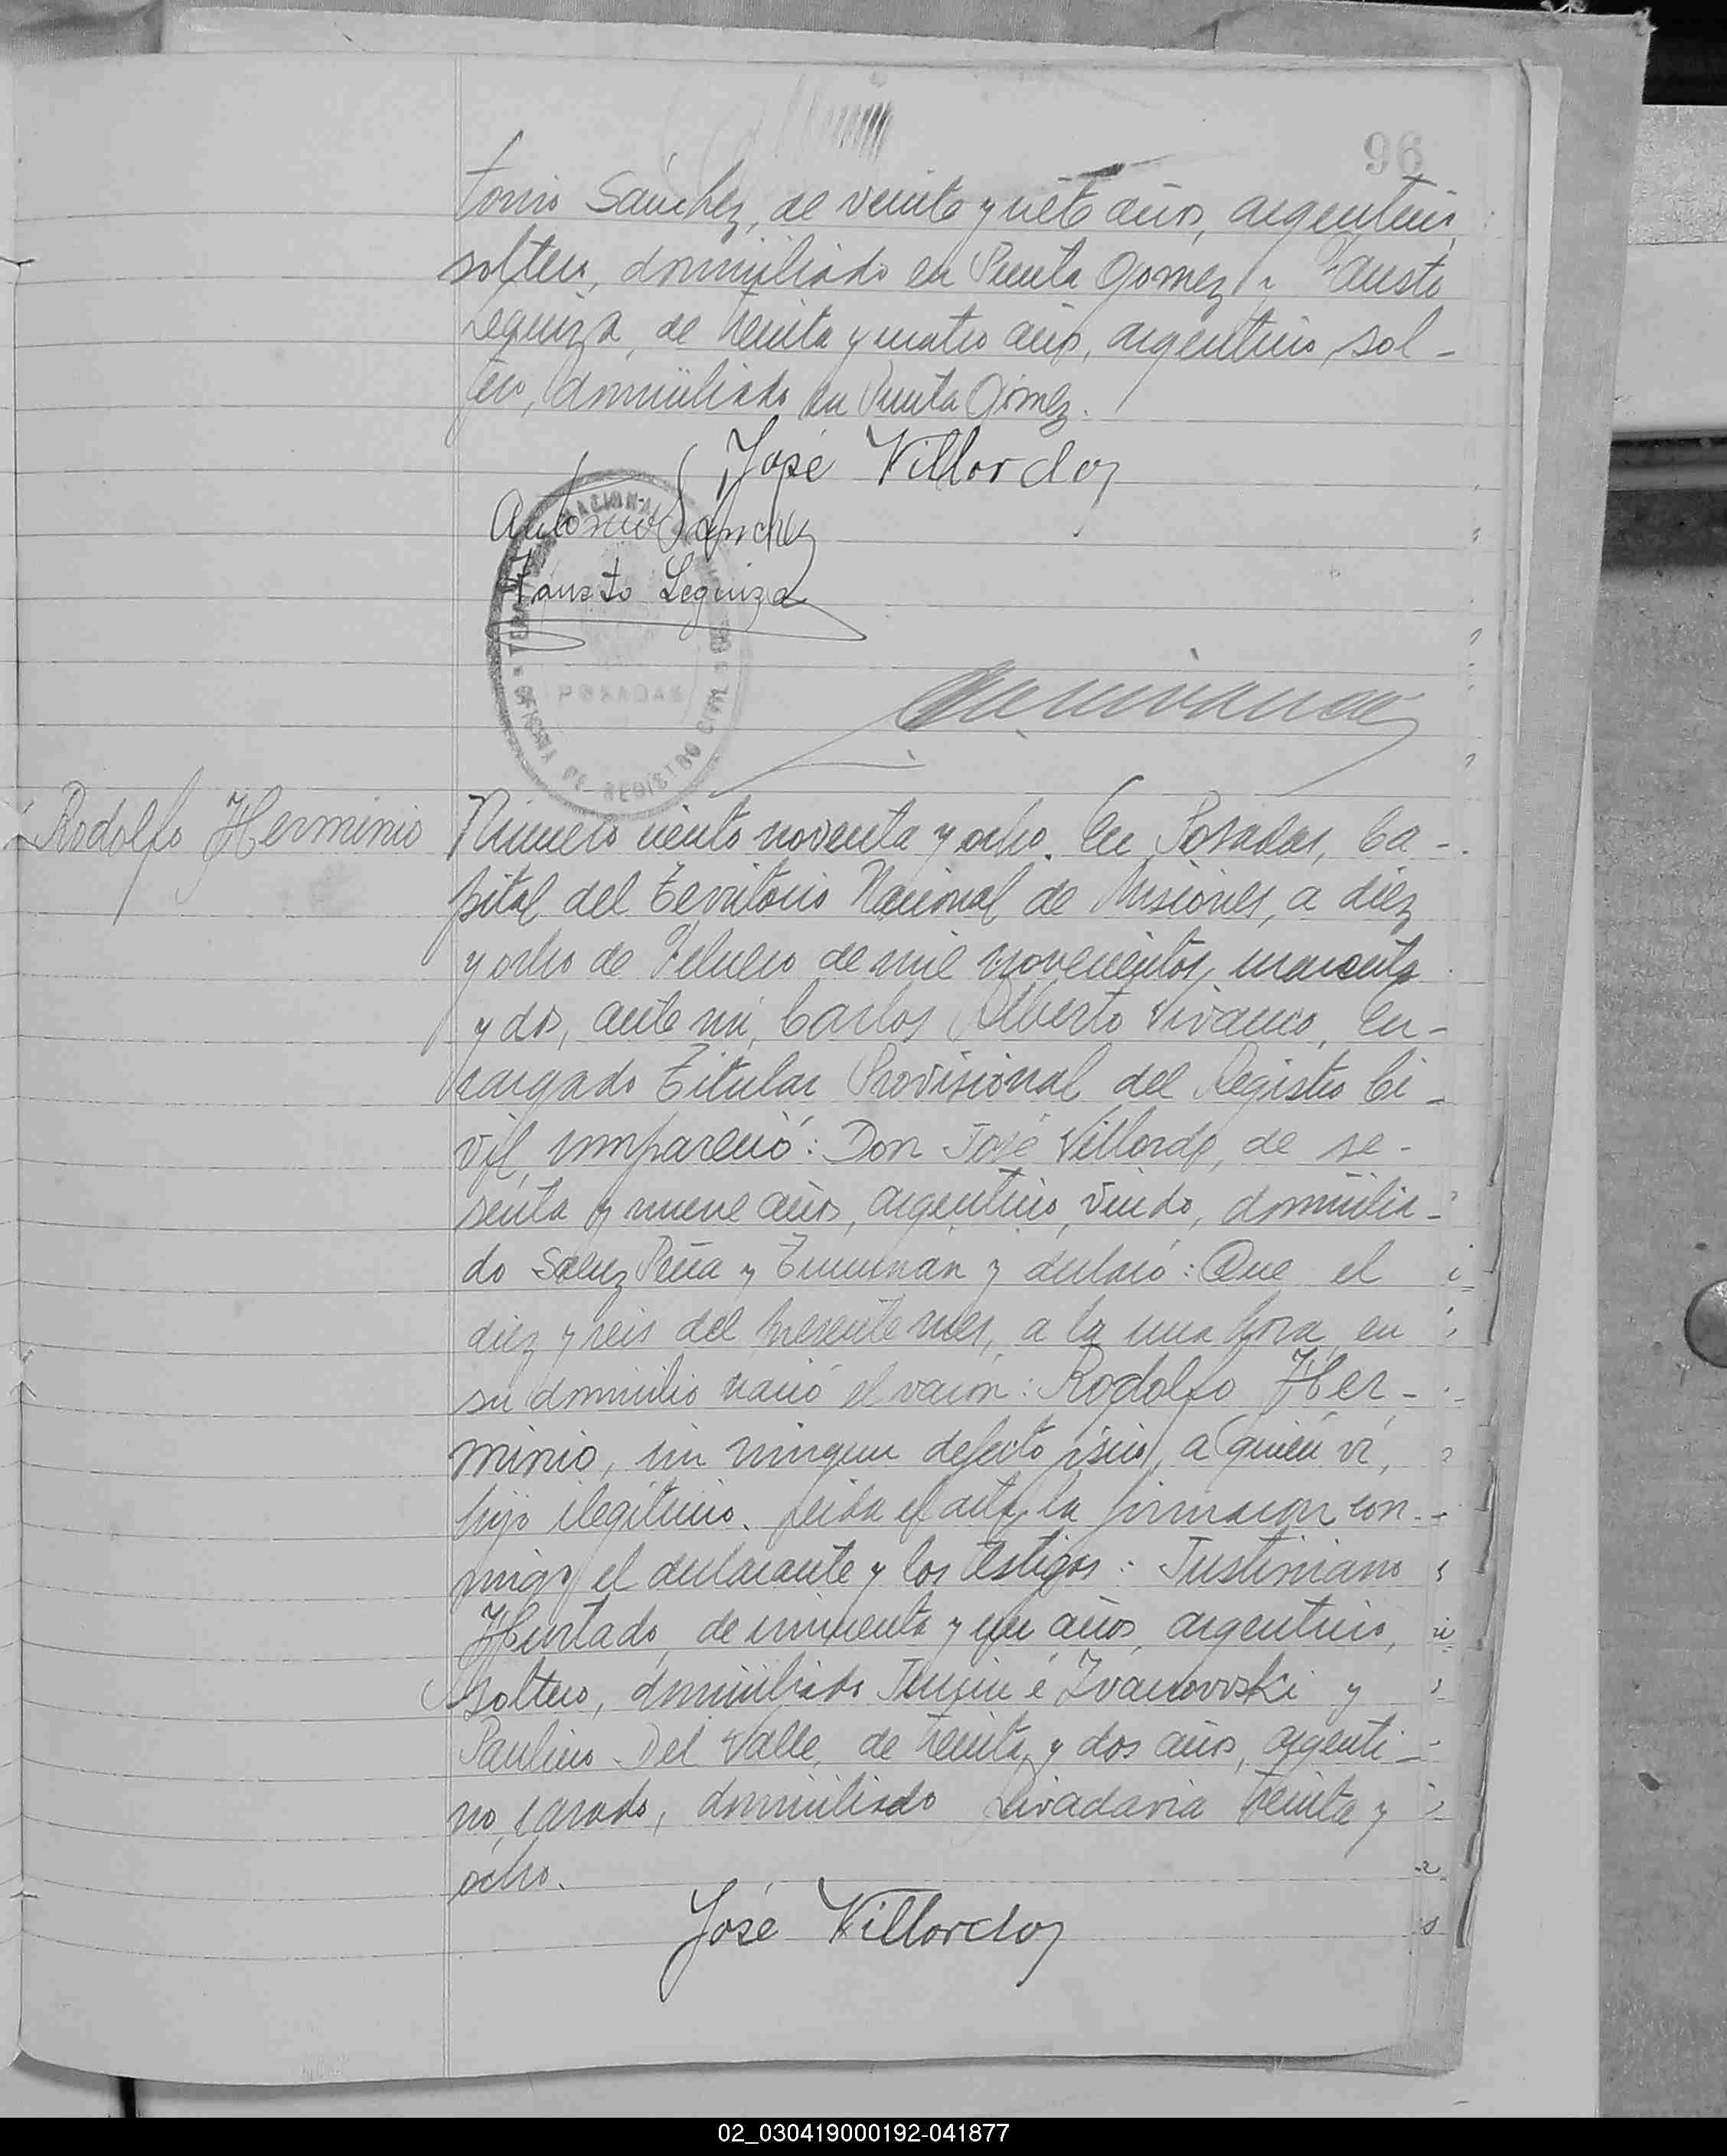 96
tonio Sánchez, de veinte y siete años, argentino,
soltero, domiciliado en Punta Gomez y Fausto
Leguiza, de treinta y cuatro años, argentino, sol-
tero, domiciliado en Punta Gómez.
José Villordo
Antonio Sanchez
Fausto Leguiza
NACIONAL
POSADAS
OFICINA DE REGISTRO CIVIL
Rodolfo Herminio
Número ciento noventa y ocho. En Posadas, Ca-
pital del Territorio Nacional de Misiones, a diez
y ocho de Febrero de mil novecientos cuarenta
y dos, ante mí, Carlos Alberto Vivanco, En-
cargado Titular Provisional del Registro Ci-
vil, compareció: Don José Villordo, de se-
senta y nueve años, argentino, viudo, domicilia-
do Saenz Peña y Tucumán y declaró: Que el
diez y seis del presente mes, a la una hora, en
su domicilio nació el varón: Rodolfo Her-
minio, sin ningun defecto físico, a quién ví,
hijo ilegítimo. Leida el acta, la firmaron con-
migo el declarante y los testigos: Justiniano
Hurtado, de cincuenta y un años, argentino,
soltero, domiciliado Junin é Ivanovski y
Paulino Del Valle, de treinta y dos años, argenti-
no, casado, domiciliado Rivadavia treinta y
ocho.
José Villordo
02_030419000192-041877